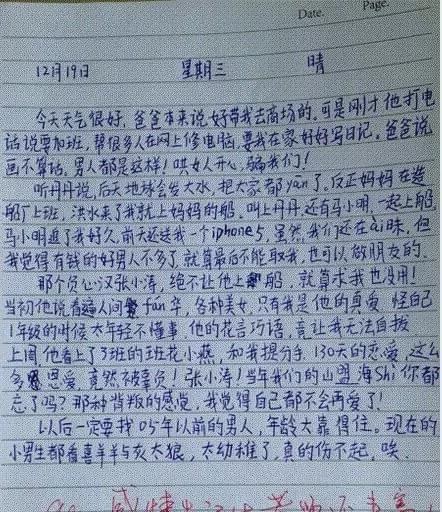 Date. Page.
12月19日 星期三 晴
今天天气很好,爸爸本来说好带我去商场的,可是刚才他打电
话说要加班,帮很多人在网上修电脑,要我在家好好写日记。爸爸说
画不算话,男人都是这样!哄女人开心,骗我们!
听丹丹说,后天地球会发大水,把大家都yān了,反正妈妈在造
船厂上班,洪水来了我就上妈妈的船,叫上丹丹,还有马小明,一起上船,
马小明追了我好久,前天还送我一个iphone5,虽然我们还在ài昧,但
我觉得有钱的好男人不多了,就算最后不能取我,也可以做朋友的。
那个负心汉张小涛,绝不让他上船,就算求我也没用!
当初他说看遍人间fán华,各种美女,只有我是他的真爱,怪自己
1年级的时候太年轻不懂事,他的花言巧语,竟让我无法自拔
上周他看上了3班的班花小燕,和我提分手,130天的恋爱,这么
多恩爱,竟然被辜负!张小涛!当年我们的山盟海Shì你都
忘了吗?那种背叛的感觉,我觉得自己都不会再爱了!
以后一定要找05年以前的男人,年龄大靠得住。现在的
小男生都看喜羊羊与灰太狼,太幼稚了,真的伤不起,唉.